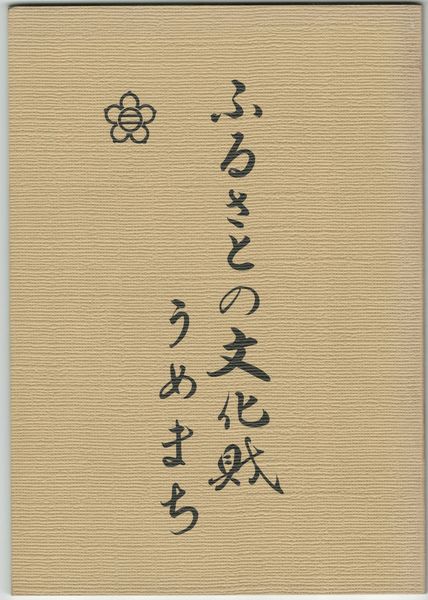 ふるさとの文化財
うめまち